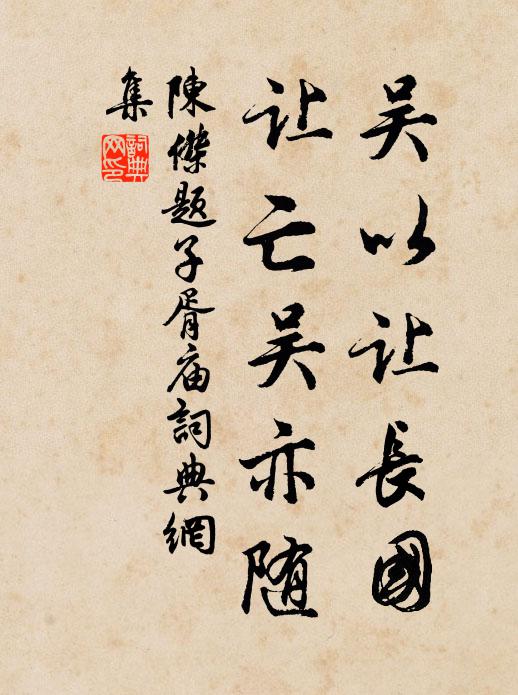 吴以让長國
让亡吴亦随
陳傑题子胥庙詞典網
集
詞典网印